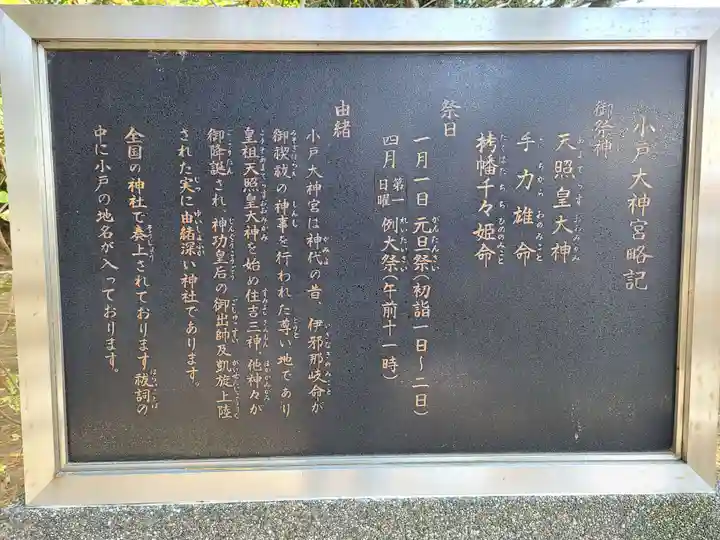 小戸大神宮略記
御祭神
天照皇大神
手力雄命
栲幡千々姫命
祭日
一月一日 元旦祭(初詣一日~二日)
四月 第一日曜 例大祭(午前十一時)
由緒
小戸大神宮は神代の昔、伊邪那岐命が
御禊祓の神事を行われた尊い地であり
皇祖天照皇大神を始め住吉三神、他神々が
御降誕され、神功皇后の御出師及凱旋上陸
された実に由緒深い神社であります。
全国の神社で奏上されております祓詞の
中に小戸の地名が入っております。